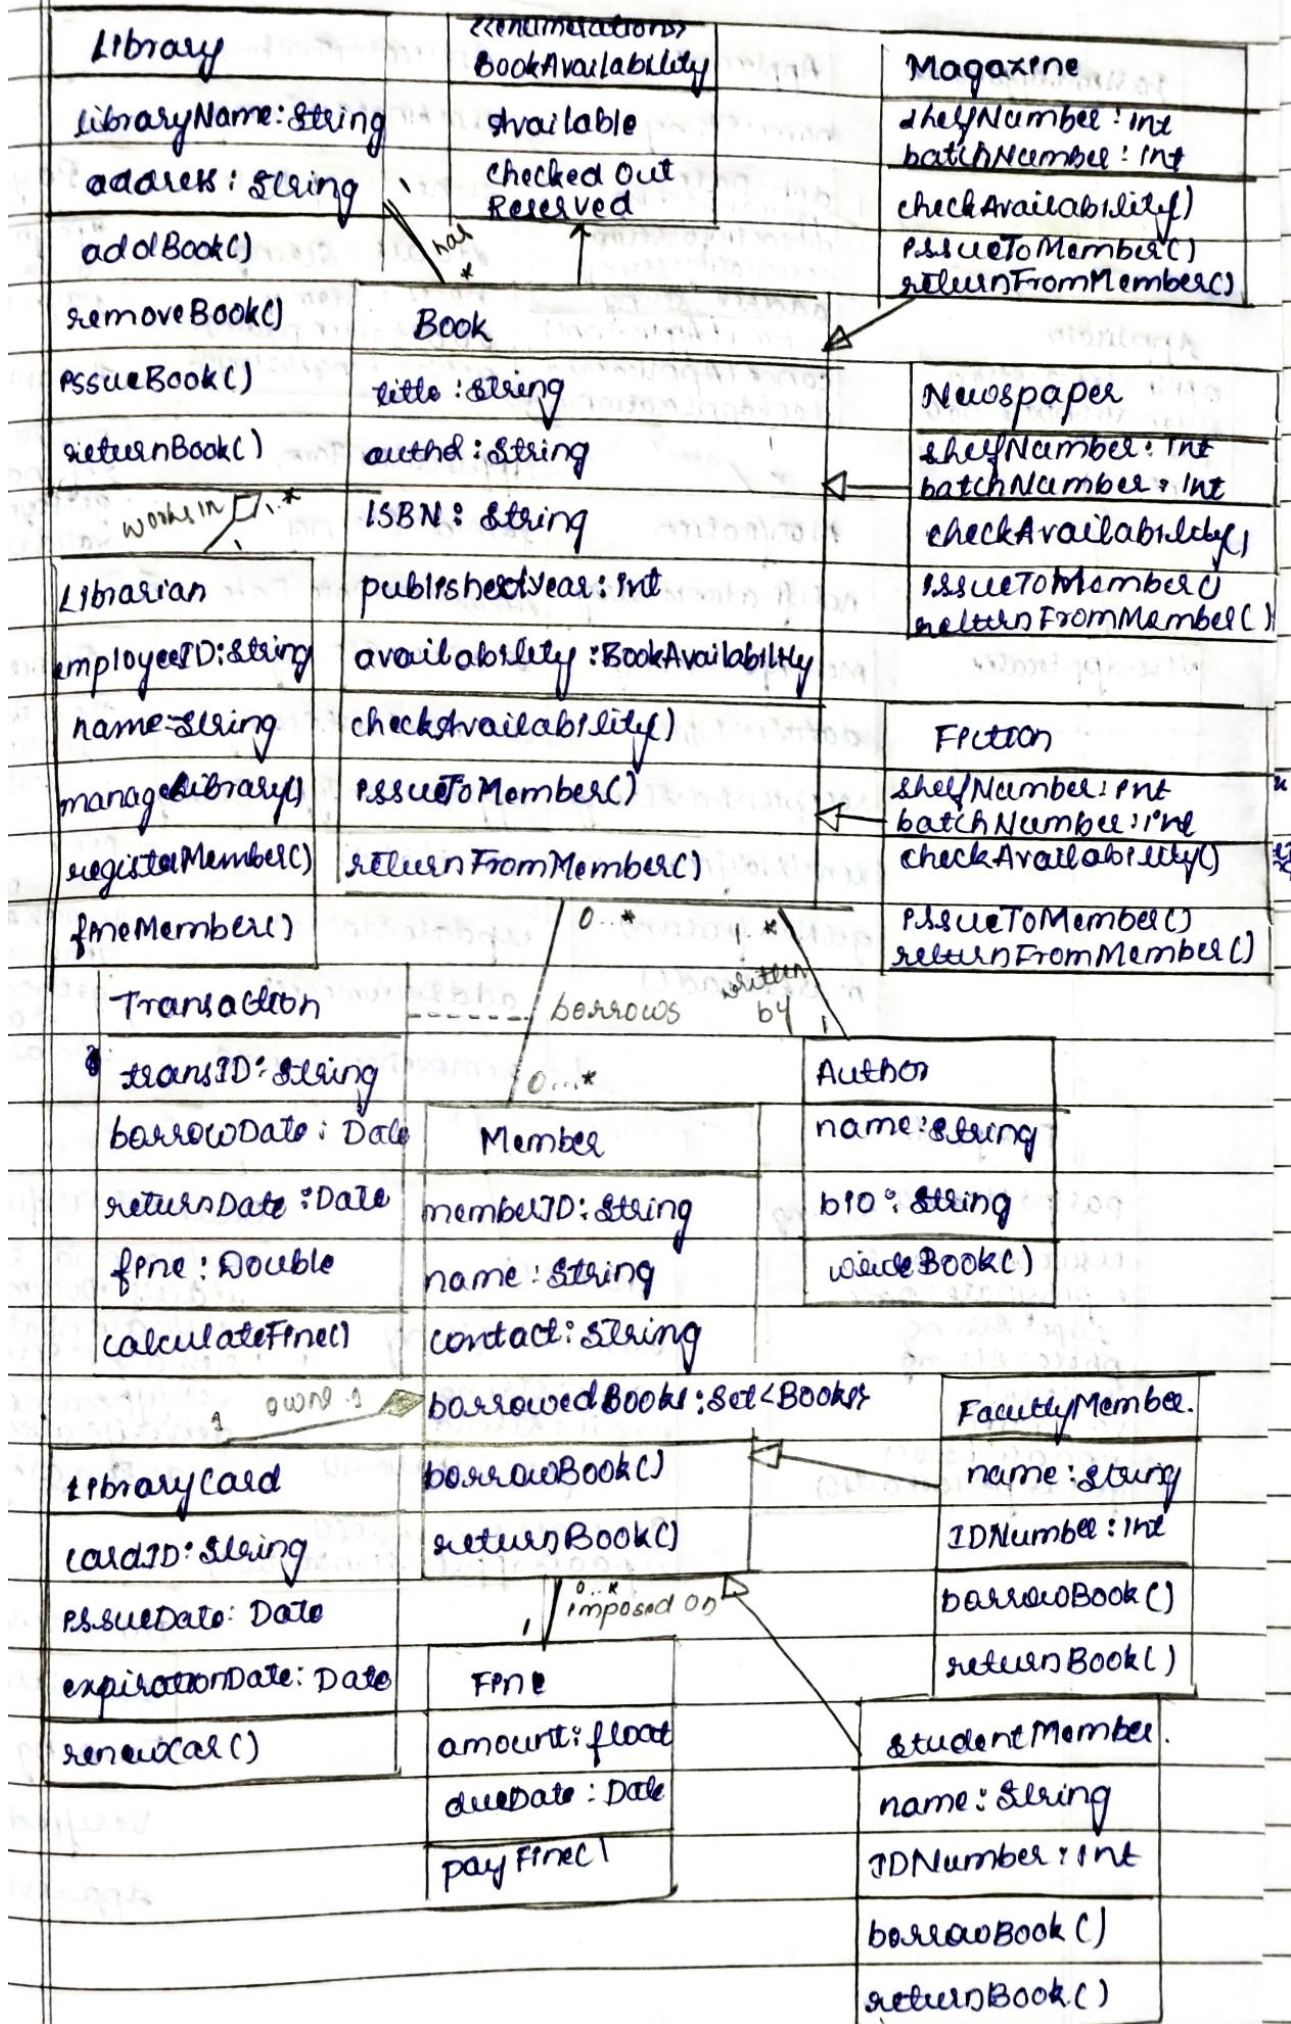 Library
libraryName: String
address: String
addBook()
removeBook()
issueBook()
returnBook()
<<enumerations>>
BookAvailability
Available
Checked Out
Reserved
Magazine
shelfNumber: int
batchNumber: int
checkAvailability()
issueToMember()
returnFromMember()
1
has
*
Book
title: String
author: String
ISBN: String
publishedYear: int
availability: BookAvailability
checkAvailability()
issueToMember()
returnFromMember()
Newspaper
shelfNumber: int
batchNumber: int
checkAvailability()
issueToMember()
returnFromMember()
works in
1..*
1
Librarian
employeeID: String
name: String
manageLibrary()
registerMember()
fineMember()
Fiction
shelfNumber: int
batchNumber: int
checkAvailability()
issueToMember()
returnFromMember()
0...*
borrows
0...*
*
written
by
1
Transaction
transID: String
borrowDate: Date
returnDate: Date
fine: Double
calculateFine()
Member
memberID: String
name: String
contact: String
borrowedBooks: Set<Books>
borrowBook()
returnBook()
Author
name: String
bio: String
writeBook()
1
owns
1
LibraryCard
cardID: String
issueDate: Date
expirationDate: Date
renewCar()
FacultyMember.
name: String
IDNumber: int
borrowBook()
returnBook()
0...*
imposed on
1
Fine
amount: float
dueDate: Date
payFine()
StudentMember.
name: String
IDNumber: int
borrowBook()
returnBook()